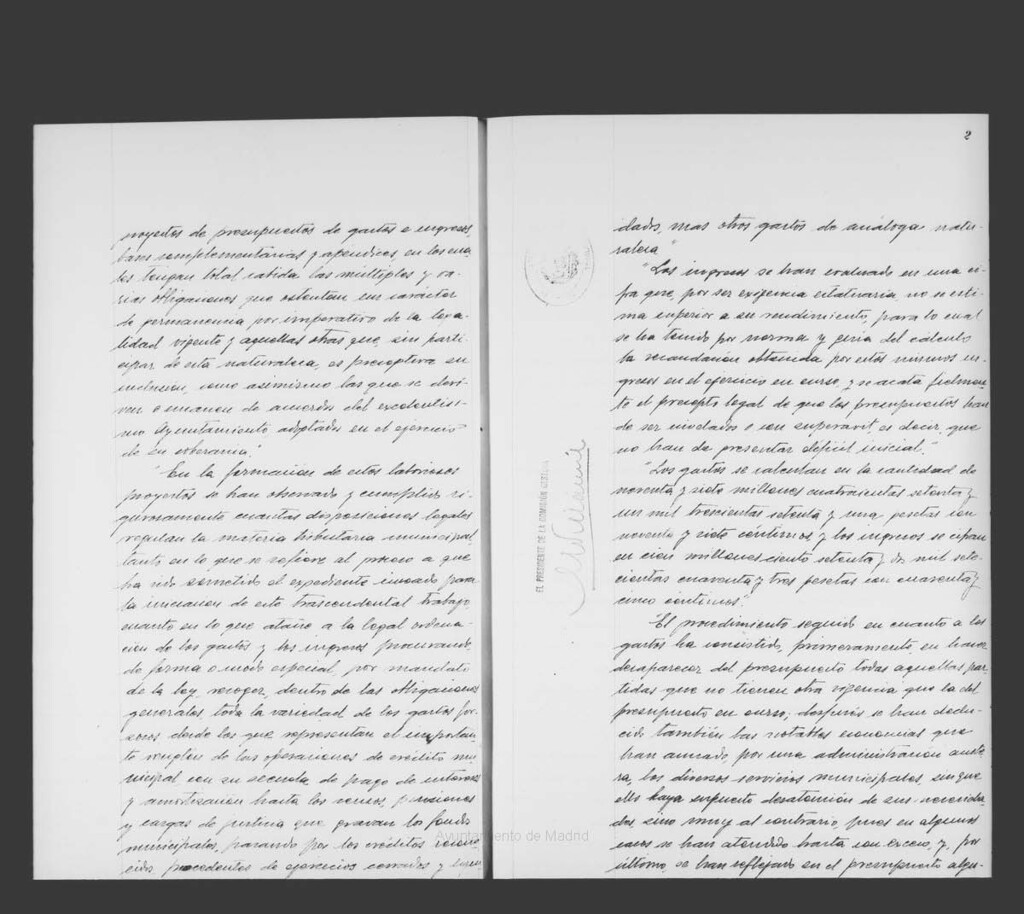 proyectos de presupuestos de gastos e ingresos,
bases complementarias y apéndices, en los cua-
les tengan total cabida las múltiples y va-
rias obligaciones que ostentan un carácter
de permanencia por imperativo de la lega-
lidad vigente y aquellas otras que, sin parti-
cipar de esta naturaleza, es preceptiva su
inclusión, como asimismo las que se deri-
ven o emanen de acuerdos del excelentísi-
mo Ayuntamiento adoptados en el ejercicio
de su soberanía."
"En la formación de estos laboriosos
proyectos se han observado y cumplido ri-
gurosamente cuantas disposiciones legales
regulan la materia tributaria municipal,
tanto en lo que se refiere al proceso a que
ha sido sometido el expediente incoado para
la iniciación de este trascendental trabajo,
cuanto en lo que atañe a la legal ordena-
ción de los gastos y los ingresos, procurando,
de forma o modo especial, por mandato
de la ley, recoger, dentro de las obligaciones
generales, toda la variedad de los gastos for-
zosos desde los que representan el importan-
te renglón de las operaciones de crédito mu-
nicipal con su secuela de pago de intereses
y amortización hasta los censos, pensiones
y cargas de justicia que gravan los fondos
municipales, pasando por los créditos recono-
cidos procedentes de ejercicios cerrados y
2
dados, mas otros gastos de análoga natu-
raleza"
"Los ingresos se han evaluado en una ci-
fra que, por ser exigencia estatutaria, no se esti-
ma superior a su rendimiento, para lo cual
se ha tenido por norma y guía del cálculo
la recaudación obtenida por estos mismos in-
gresos en el ejercicio en curso, y se acata fielmen-
te el precepto legal de que los presupuestos han
de ser nivelados o con superavit, es decir, que
no han de presentar déficit inicial."
"Los gastos se calculan en la cantidad de
noventa y siete millones cuatrocientas setenta y
un mil trescientas setenta y una pesetas con
noventa y siete céntimos y los ingresos se cifran
en cien millones ciento setenta y dos mil sete-
cientas cuarenta y tres pesetas con cuarenta y
cinco céntimos".
"El procedimiento seguido en cuanto a los
gastos ha consistido, primeramente, en hacer
desaparecer del presupuesto todas aquellas par-
tidas que no tienen otra vigencia que la del
presupuesto en curso; después se han dedu-
cido también las notables economías que
han arrojado, por una administración auste-
ra, los diversos servicios municipales, sin que
ello haya supuesto desatención de sus necesida-
des, sino muy al contrario, pues en algunos
casos se han atendido hasta con exceso, y, por
último, se han reflejado en el presupuesto algu-
EL PRESIDENTE DE LA COMISIÓN GESTORA
Ayuntamiento de Madrid